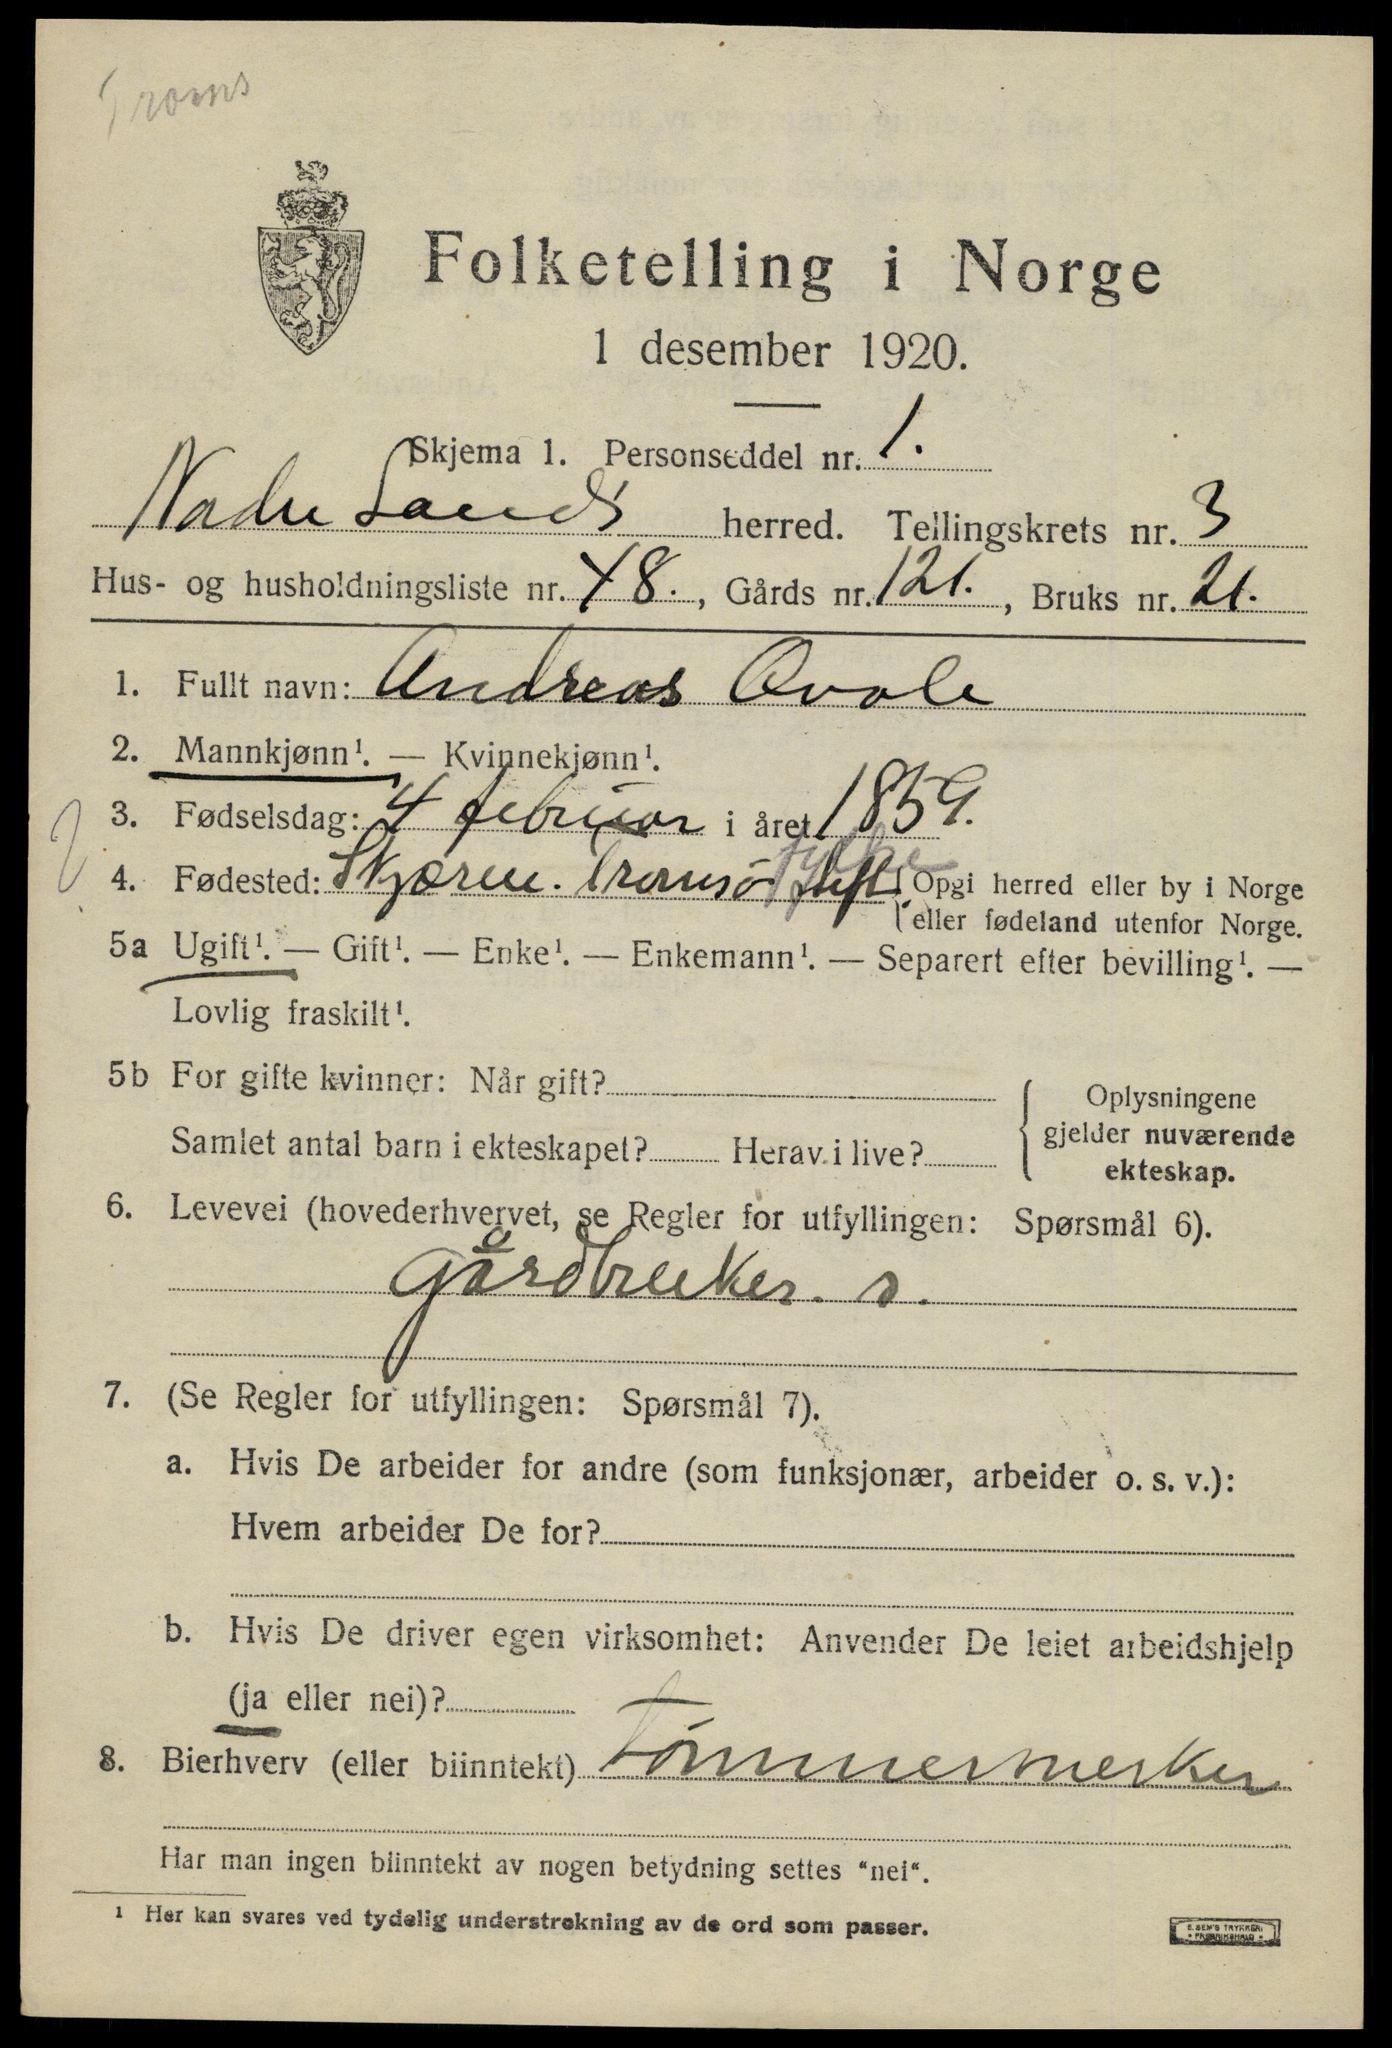 Troms
Folketelling i Norge
1 desember 1920.
Skjema 1. Personseddel nr. 1.
Nordre Land herred. Tellingskrets nr. 3
Hus- og husholdningsliste nr. 48., Gårds nr. 121., Bruks nr. 21.
1. Fullt navn: Andreas Qvale
2. Mannkjønn¹. — Kvinnekjønn¹.
3. Fødselsdag: 4 februar i året 1859.
4. Fødested: Tromsø stift fylke {Opgi herred eller by i Norge
eller fødeland utenfor Norge.
5a Ugift¹. — Gift¹. — Enke¹. — Enkemann¹. — Separert efter bevilling¹. —
Lovlig fraskilt¹.
5b For gifte kvinner: Når gift?
Samlet antal barn i ekteskapet? Herav i live?
Oplysningene
gjelder nuværende
ekteskap.
6. Levevei (hovederhvervet, se Regler for utfyllingen: Spørsmål 6).
Gårdbruker. s.
7. (Se Regler for utfyllingen: Spørsmål 7).
a. Hvis De arbeider for andre (som funksjonær, arbeider o. s. v.):
Hvem arbeider De for?
b. Hvis De driver egen virksomhet: Anvender De leiet arbeidshjelp
(ja eller nei)?
8. Bierhverv (eller biinntekt) Tømmermerker
Har man ingen biinntekt av nogen betydning settes "nei".
¹ Her kan svares ved tydelig understrekning av de ord som passer.
E. SEM'S TRYKKERI
• FREDRIKSHALD •